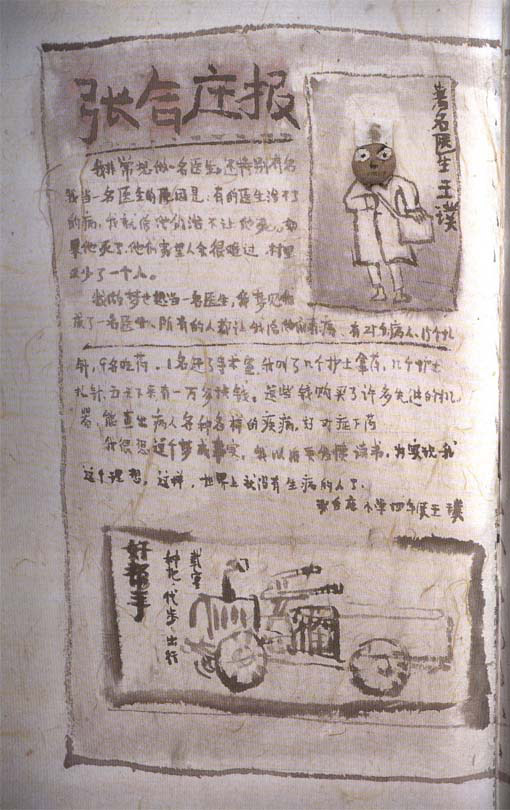 张合庄报
著名医生王璞
我非常想做一名医生。还特别有名
我当一名医生的原因是：有的医生治不了
的病，我就给他们治不让他死。如
果他死了，他们家里人会很难过，村里
又少了一个人。
我的梦也想当一名医生，我梦见我
成了一名医生、所有的人都让我给他们看病、有25个病人、15个扎
针，9名吃药。1名进了手术室，我叫了几个护士拿药，几个护士
扎针 五天下来有一万多块钱。这些钱购买了许多先进的机
器，能查出病人各种各样的疾病，好对症下药
我很想这个梦成事实，我以后要好好读书，为实现我
这个理想，这样，世界上就没有生病的人了。
张合庄小学四年级王璞
好帮手
种地、代步、出行
载客